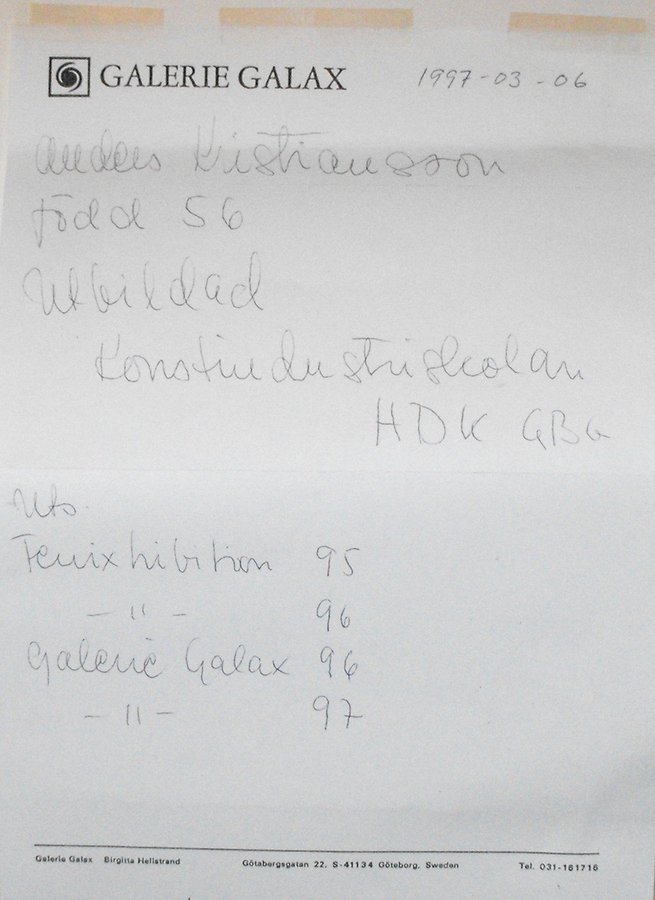 GALERIE GALAX 1997-03-06
Anders Kristiansson
född 56
Utbildad
Konstindustriskolan
HDK GBG
Uts.
Fenixhibition 95
-"- 96
Galerie Galax 96
-"- 97
Galerie Galax Birgitta Hellstrand Götabergsgatan 22, S-41134 Göteborg, Sweden Tel. 031-161716